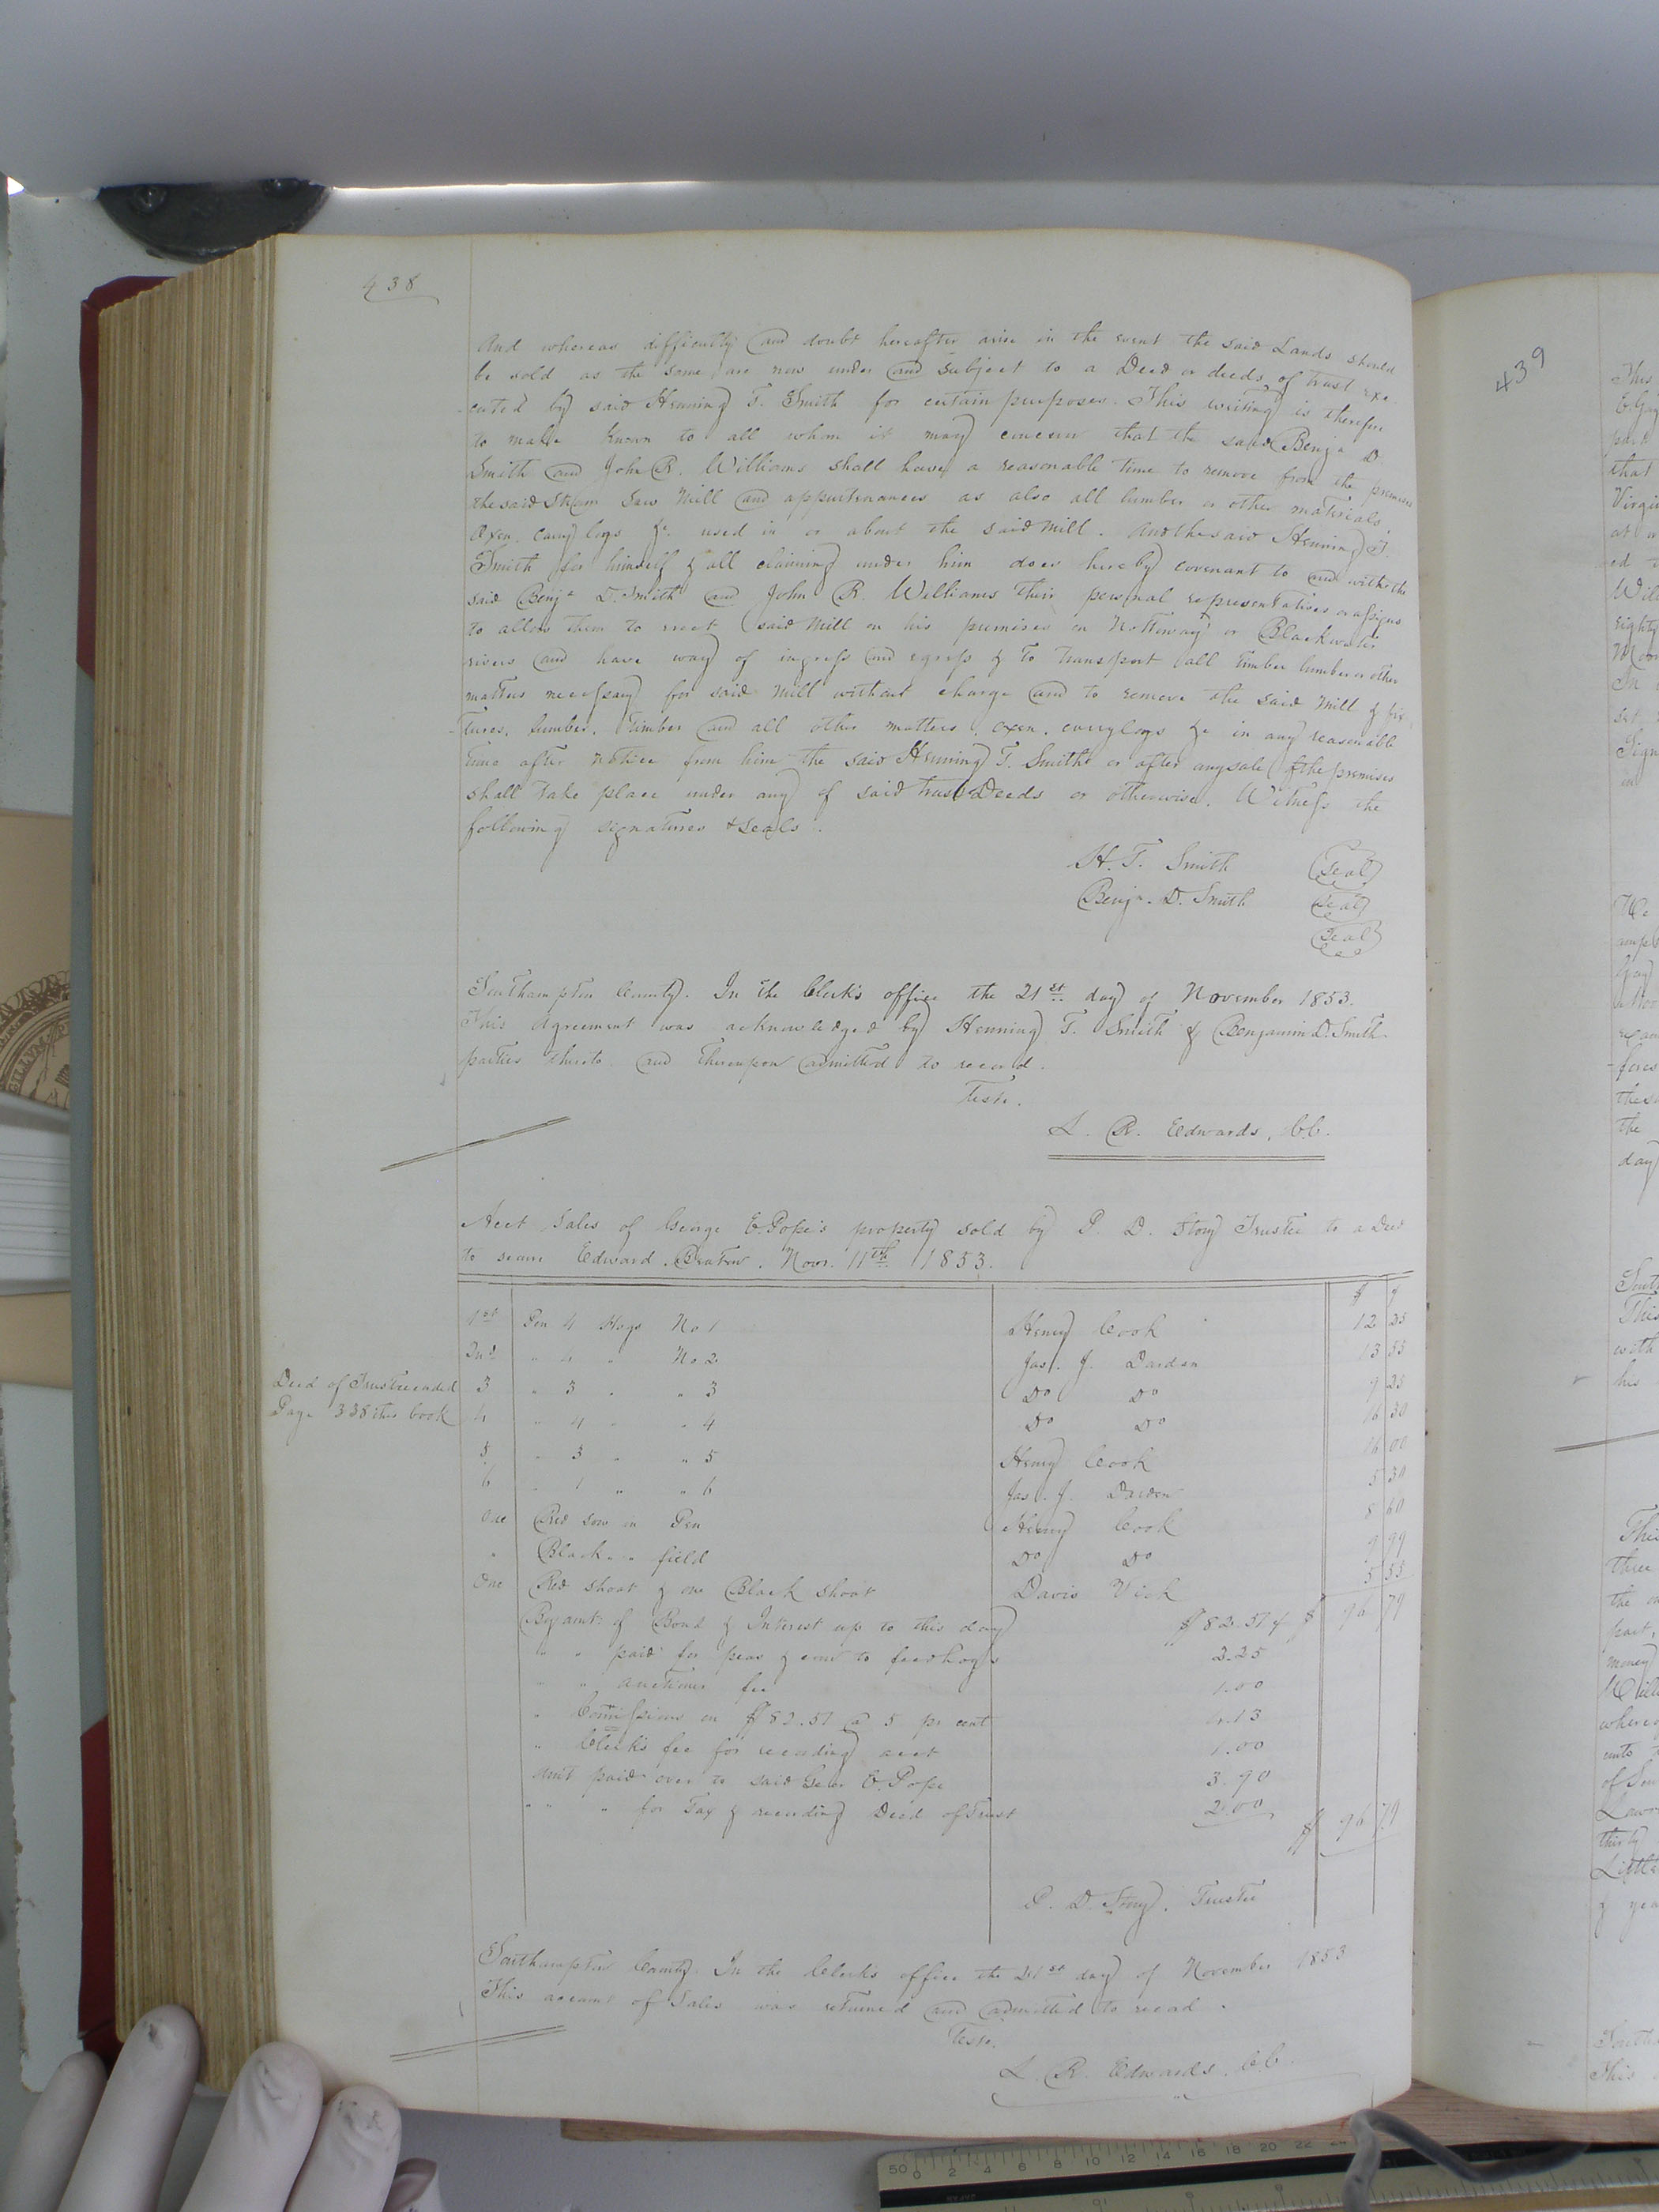 438
And whereas difficulty and doubt hereafter arise in the event the said Lands should
be sold as the same are now under and subject to a Deed or deeds of trust exe
-cuted by said Henning T. Smith for certain purposes. This writing is therefore
to make known to all whom it may concern that the said Benja D
Smith and John R. Williams shall have a reasonable time to remove from the premises
the said Steam Saw Mill and appurtenances as also all lumber or other materials,
Oxen, carry logs &c. used in or about the said Mill. And the said Henning T.
Smith for himself & all claiming under him does hereby covenant to and with the
said Benja D. Smith and John R. Williams their personal representatives or assigns
to allow them to erect said Mill on his premises on Nottoway or Blackwater
rivers and have way of ingress and egress & to transport all timber lumber or other
matters necessary for said Mill without charge and to remove the said Mill & fix
-tures, lumber, timber and all other matters, oxen, carrylogs &c in any reasonable
time after notice from him the said Henning T. Smith or after any sale of the premises
shall take place under any of said trust Deeds or otherwise. Witness the
following signatures & seals.
H. T. Smith (Seal)
Benja. D. Smith (Seal)
(Seal)
Southampton County. In the Clerk's office the 21st day of November 1853.
This Agreement was acknowledged by Henning T. Smith & Benjamin D. Smith
parties thereto and thereupon admitted to record.
Teste.
L. R. Edwards, C.C.
Acct Sales of George E. Pope's property sold by P. D. Story Trustee to a Deed
to secure Edward Beaton. Novr. 11th 1853.
1st Pen 4 Hogs No 1 Henry Cook 12 25
2nd " 4 " No 2 Jas. J. Darden 13 55
Deed of Trust recorded
Page 338 this book
3 " 3 " " 3 Do Do 9 25
4 " 4 " " 4 Do Do 16 30
5 " 3 " " 5 Henry Cook 16 00
6 " 1 " " 6 Jas. J. Darden 5 30
One Red sow in Pen Henry Cook 8 60
" Black " " field Do Do 9 99
One Red shoat & one Black shoat Davis Vick 5 55
By amt. of Bond & Interest up to this day $82.51 $ 96 79
" " paid for peas & corn to feed hogs 2.25
" " auctioneer fee 1.00
" Commissions on $82.51 @ 5 pr cent 4.13
" Clerk's fee for recording acct 1.00
Amt paid over to said Geo. E. Pope 3.90
" " " for Tax & recording Deed of Trust 2.00 $ 96 79
P. D. Story, Trustee
Southampton County. In the Clerk's office the 21st day of November 1853
This account of Sales was returned and admitted to record.
Teste.
L. R. Edwards, C.C.
439
50 0 2 4 6 8 10 12 14 16 18 20 22